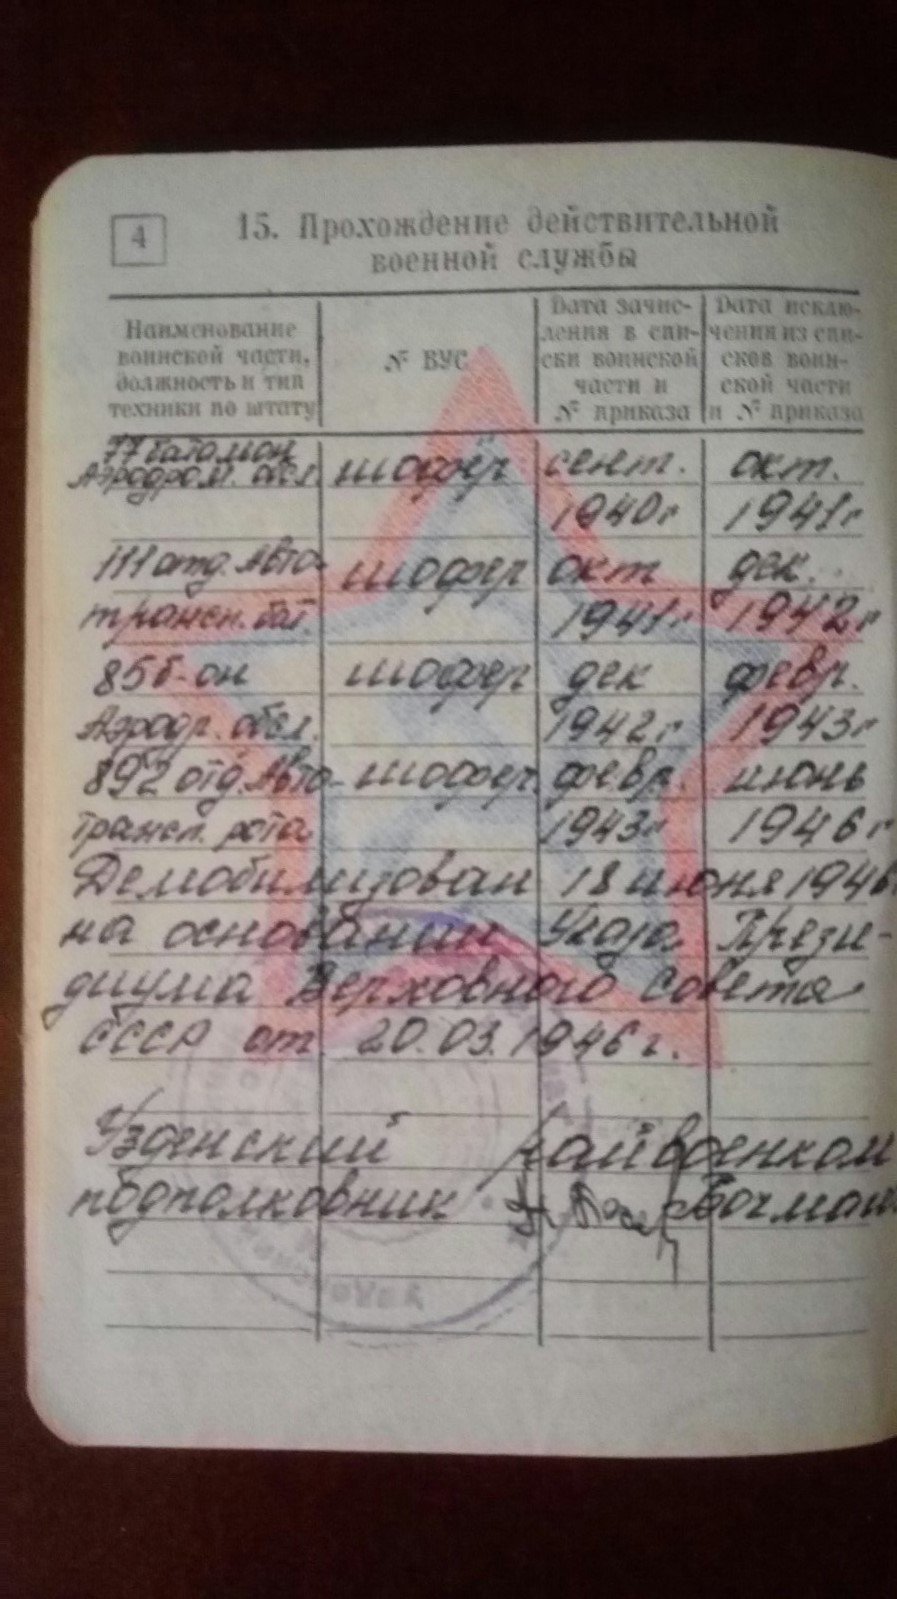 4
15. Прохождение действительной
военной службы
Наименование
воинской части,
должность и тип
техники по штату
№ ВУС
Дата зачис-
ления в спи-
ски воинской
части и
№ приказа
Дата исклю-
чения из спи-
сков воин-
ской части
и № приказа
77 батальон
Аэродром. обсл. шофёр сент. окт.
1940г 1941г
111 отд. Авто- шофер окт дек.
трансп. бат. 1941г 1942г
85 б-он шофер дек февр.
Аэродр. обсл. 1942г 1943г
892 отд. Авто- шофер февр. июнь
трансп. рота 1943г 1946г
Демобилизован 18 июня 1946
на основании Указа Прези-
диума Верховного Совета
СССР от 20.03.1946г.
Узденский райвоенком
подполковник